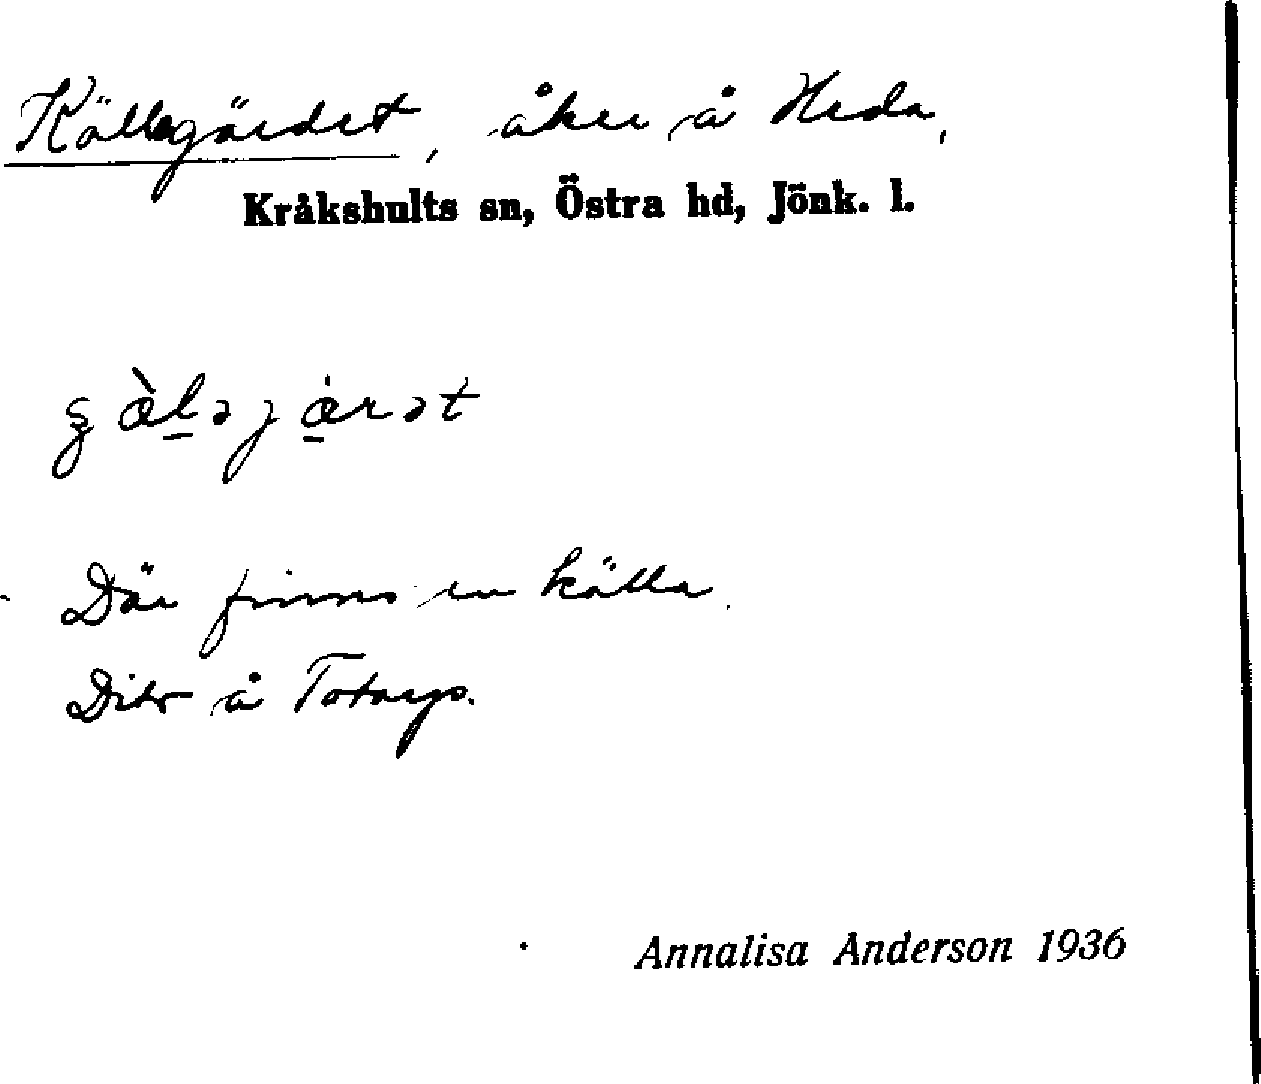 Källegärdet, åker å Heda,
Kråkshults sn, Östra hd, Jönk. l.
Där finns en källa.
Dito å Totarps.
Annalisa Anderson 1936